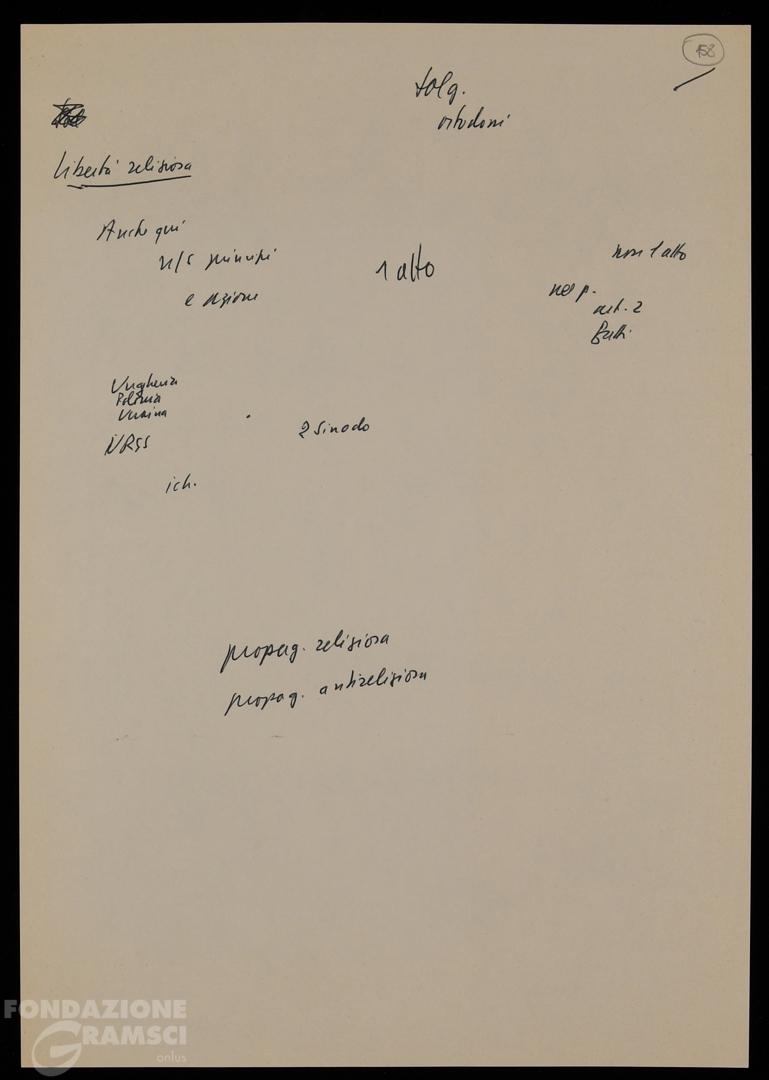 158
bolg.
ortodossi
Libertà religiosa
Anche qui
n/s principi
e azione
1 atto
non 1 atto
nel p.
art. 2
Ungheria
Polonia
Ucraina
URSS
2 Sinodo
ich.
propag. religiosa
propag. antireligiosa
FONDAZIONE
GRAMSCI
onlus